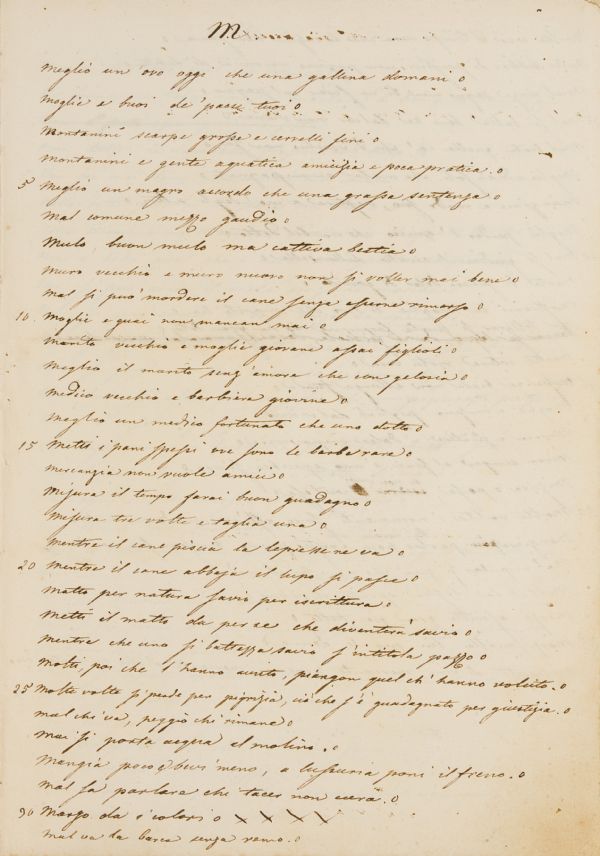 M
Meglio un ovo oggi che una gallina domani
Moglie e buoi de' paesi tuoi
Montanini scarpe grosse e cervelli fini
Montanini e gente aquatica amicizia e poca pratica.
5 Meglio un magro acordo che una grassa sentenza
Mal comune mezzo gaudio
Mulo buon mulo ma cattiva bestia
Muro vecchio e muro nuovo non si voller mai bene
Mal si può mordere il cane senza esserne rimorso
10. Moglie e guai non mancan mai
Marito vecchio e moglie giovane assai figlioli
Meglio il marito senz'amore che con gelosia
Medico vecchio e barbiere giovine
Meglio un medico fortunato che uno dotto
15 Metti i pani spessi ove sono le barbe rare
Mercanzia non vuole amici
Misura il tempo farai buon guadagno
Misura tre volte e taglia una
Mentre il cane piscia la lepre se ne va
20 Mentre il cane abbaja il lupo si pasce
Matto per natura savio per iscrittura
Metti il matto da per se che diventerà savio
Mentre che uno si battezza savio s'intitola pazzo
Molti, poi che l'hanno avuto, piangon quel ch'hanno voluto.
25 Molte volte si perde per pigrizia, ciò che s'è guadagnato per giustizia.
Mal chi va, peggio chi rimane
Mai si porta acqua al molino.
Mangia poco e bevi meno, a lussuria poni il freno.
Mal fa parlare che tacer non
30 Marzo da i colori x x x x
Mal va da barca senza remo.